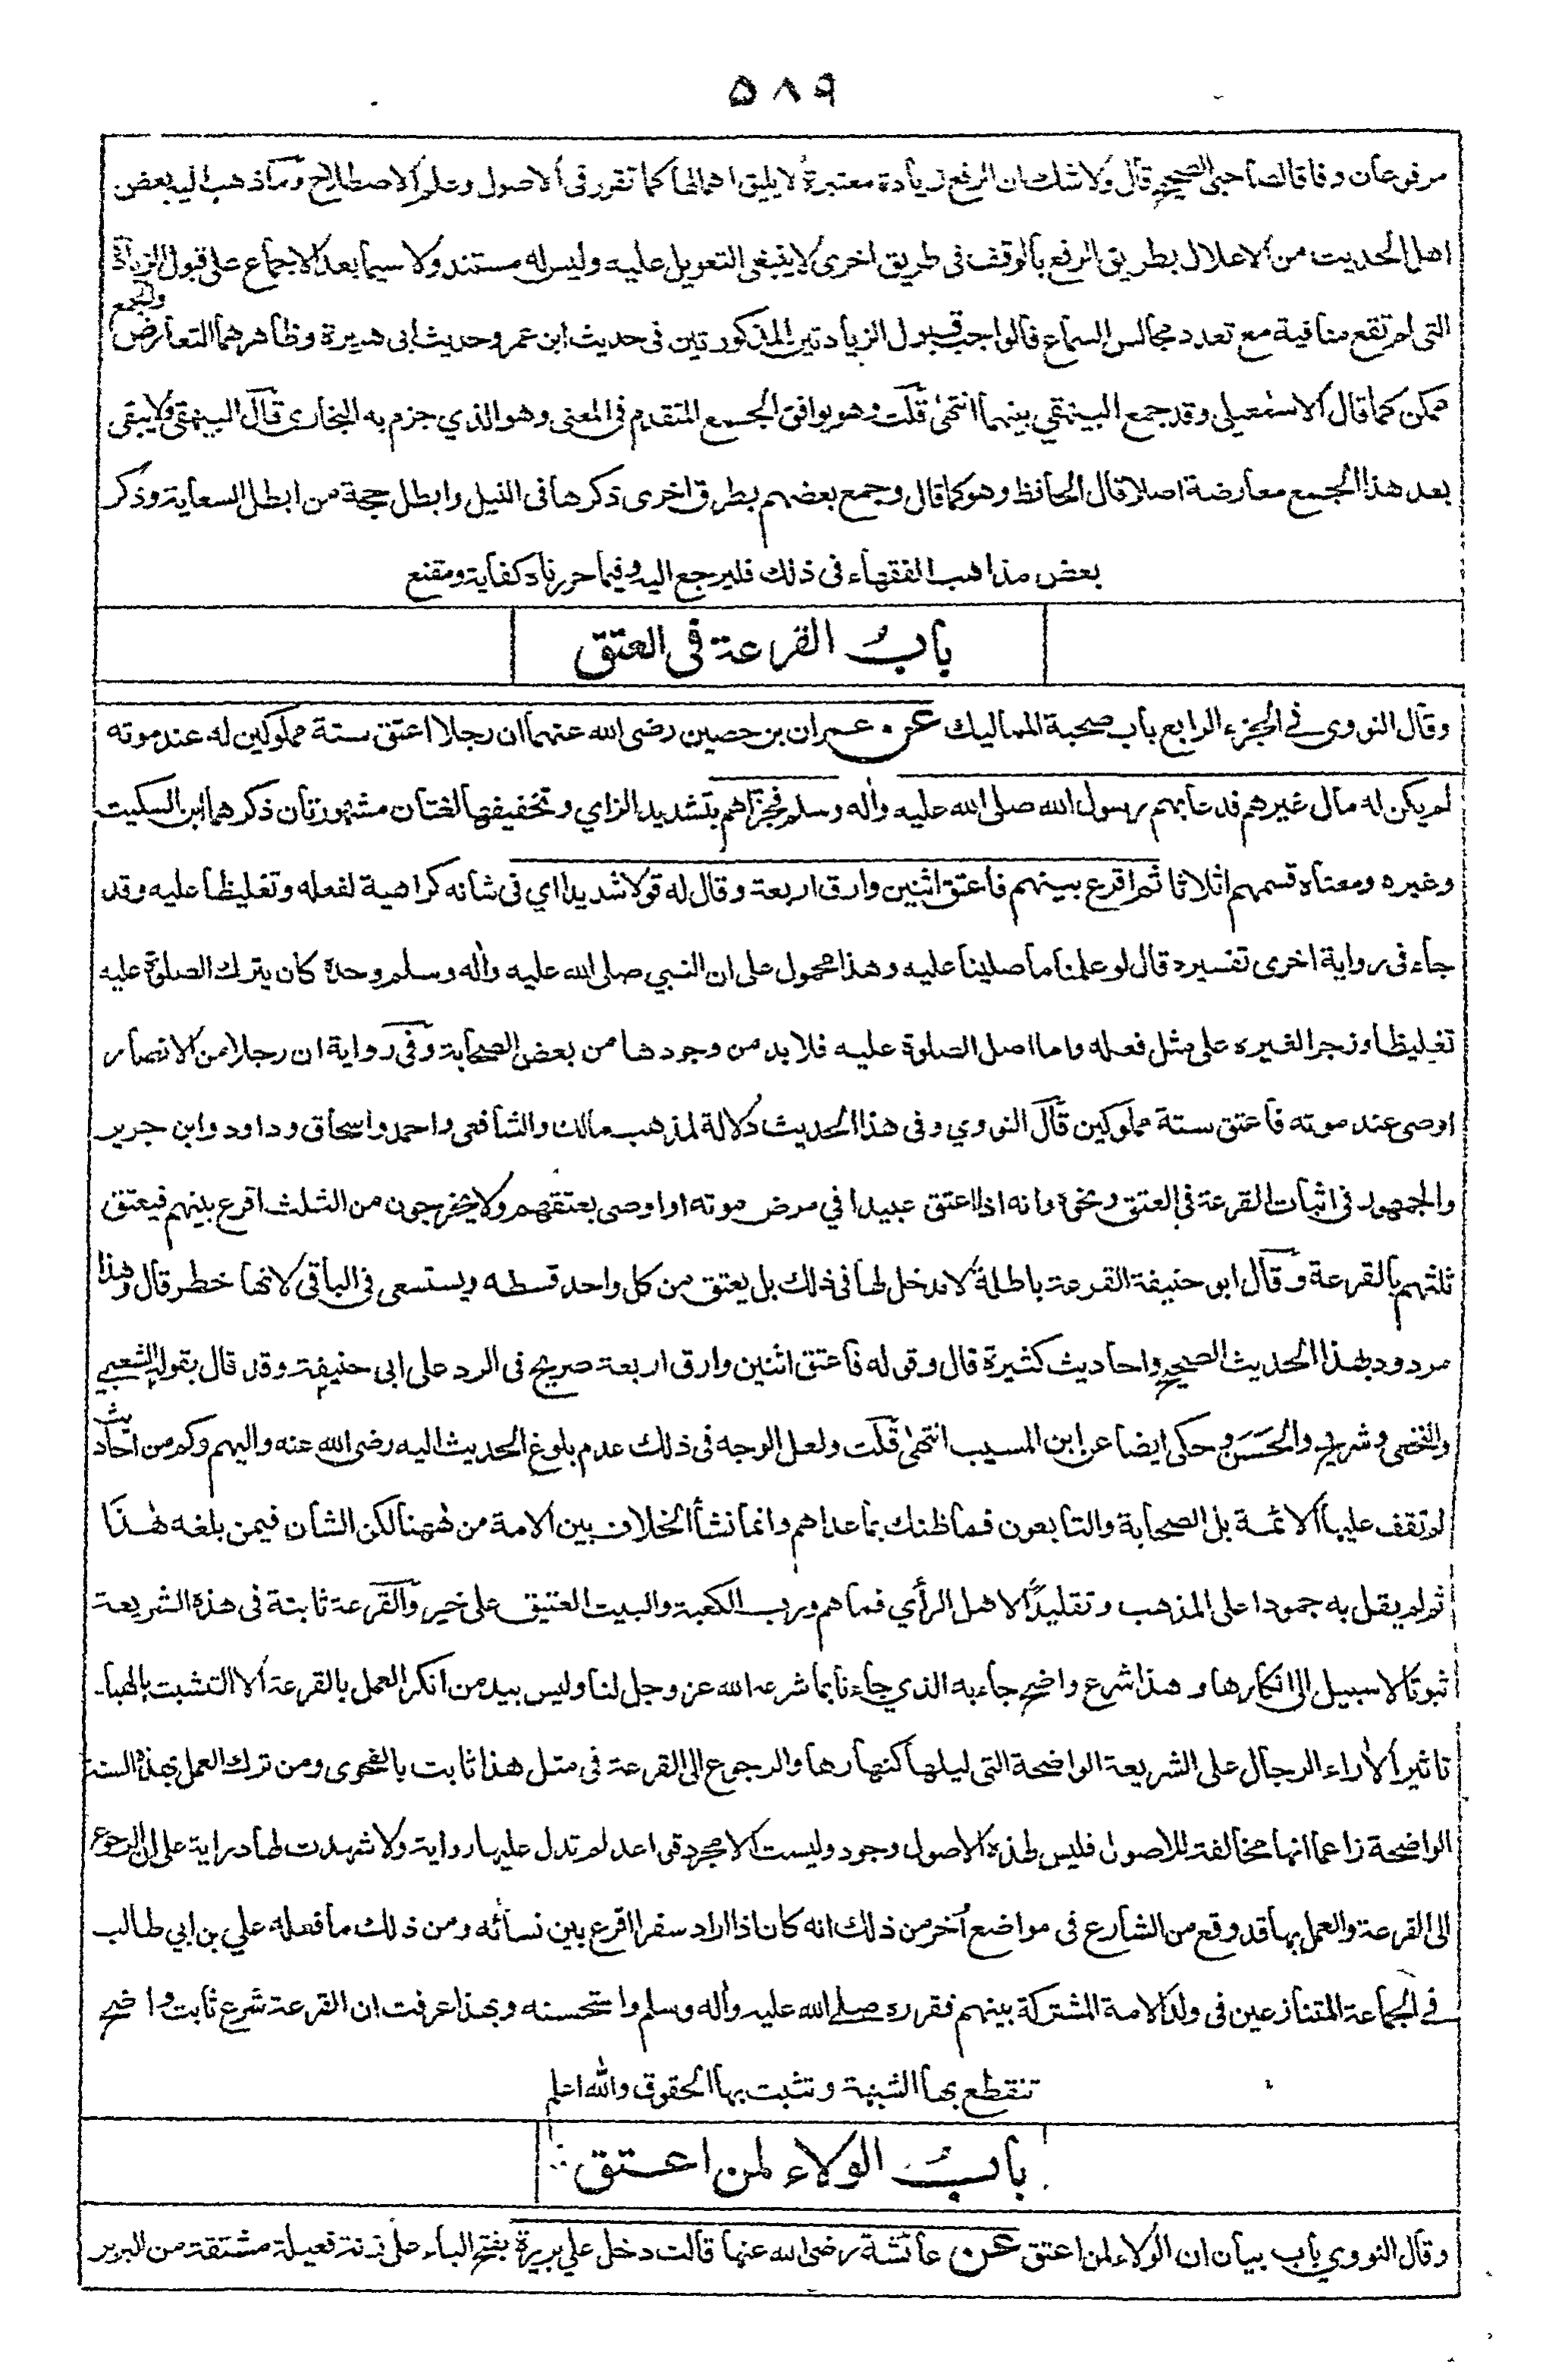 ٥٨٩
مرفوعان وفاقا لصاحبي الصحيح قال ولا شك ان الرفع زيادة معتبرة لا يليق اهمالها كما تقرر في الاصول وعلم الاصطلاح وما ذهب اليه بعض
اهل الحديث من الاعلال بطريق الرفع بالوقف في طريق اخرى لا ينبغي التعويل عليه وليس له مستند ولا سيما بعد الاجماع على قبول الزيادة
التي لم تقع منافية مع تعدد مجالس السماع فالواجب قبول الزيادتين المذكورتين في حديث ابن عمر وحديث ابي هريرة وظاهرهما التعارض والجمع
ممكن كما قال الاسمعيلي وقد جمع البيهقي بينهما انتهى قلت وهو يوافق الجمع المتقدم في المعنى وهو الذي جزم به البخاري قال البيهقي ولا يبقى
بعد هذا الجمع معارضة اصلا قال الحافظ وهو كما قال وجمع بعضهم بطرق اخرى ذكرها في النيل وابطل حجة من ابطل السعاية وذكر
بعض مذاهب الفقهاء في ذلك فليرجع اليه وفيما حررناه كفاية ومقنع
باب القرعة في العتق
وقال النووي في الجزء الرابع باب صحبة المماليك عن عمران بن حصين رضى الله عنهما ان رجلا اعتق ستة مملوكين له عند موته
لم يكن له مال غيرهم فدعا بهم رسول الله صلى الله عليه وأله وسلم فجزاهم بتشديد الزاي وتخفيفها لغتان مشهورتان ذكرهما ابن السكيت
وغيره ومعناه قسمهم اثلاثا ثم اقرع بينهم فاعتق اثنين وارق اربعة وقال له قولا شديدا اي في شانه كراهية لفعله وتغليظا عليه وقد
جاء في رواية اخرى تفسيره قال لو علمنا ما صلينا عليه وهذا محمول على ان النبي صلى الله عليه وأله وسلم وحده كان يترك الصلوة عليه
تغليظا وزجرا لغيره على مثل فعله واما اصل الصلوة عليه فلا بد من وجودها من بعض الصحابة وفي رواية ان رجلا من الانصار
اوصى عند موته فاعتق ستة مملوكين قال النووي وفي هذا الحديث دلالة لمذهب مالك والشافعي واحمد واسحاق وداود وابن جرير
والجمهور في اثبات القرعة في العتق ونحوه وانه اذا اعتق عبيدا في مرض موته او اوصى بعتقهم ولا يخرجون من الثلث اقرع بينهم فيعتق
ثلثهم بالقرعة وقال ابو حنيفة القرعة باطلة لا مدخل لها في ذلك بل يعتق من كل واحد قسطه ويستسعى في الباقي لانها خطر قال وهذا
مردود بهذا الحديث الصحيح واحاديث كثيرة قال وقوله فاعتق اثنين وارق اربعة صريح في الرد على ابي حنيفة وقد قال بقوله الشعبي
والنخعي وشريح والحسن وحكى ايضا عن ابن المسيب انتهى قلت ولعل الوجه في ذلك عدم بلوغ الحديث اليه رضى الله عنه واليهم وكم من احاديث
لم تقف عليها الائمة بل الصحابة والتابعون فما ظنك بما عداهم وانما نشأ الخلاف بين الامة من ههنا لكن الشأن فيمن بلغه هذا
ثم لم يقل به جمودا على المذهب وتقليدا لاهل الرأي فما هم ورب الكعبة والبيت العتيق على خير والقرعة ثابتة في هذه الشريعة
ثبوتا لا سبيل الى انكارها وهذا شرع واضح جاء به الذي جاءنا بما شرعه الله عز وجل لنا وليس بيد من انكر العمل بالقرعة الا التشبث بالهباء
تاثيرا لأراء الرجال على الشريعة الواضحة التي ليلها كنهارها والرجوع الى القرعة في مثل هذا ثابت بالفحوى ومن ترك العمل بهذه السنة
الواضحة زاعما انها مخالفة للاصول فليس لهذه الاصول وجود وليست الا مجرد قواعد لم تدل عليها رواية ولا شهدت لها دراية على ان الرجوع
الى القرعة والعمل بها قد وقع من الشارع في مواضع أخر من ذلك انه كان اذا اراد سفرا اقرع بين نسائه ومن ذلك ما فعله علي بن ابي طالب
في الجماعة المتنازعين في ولد الامة المشتركة بينهم فقرره صلى الله عليه وأله وسلم واستحسنه وبهذا عرفت ان القرعة شرع ثابت واضح
تنقطع بها الشبهة وتثبت بها الحقوق والله اعلم
باب الولاء لمن اعتق
وقال النووي باب بيان ان الولاء لمن اعتق عن عائشة رضى الله عنها قالت دخل علي بريرة بفتح الباء على زنة فعيلة مشتقة من البرير